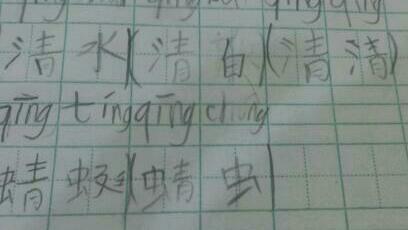 qīng qīng
清水(清自(清清)
qīng tíngqīng chóng
蜻蜓(蜻虫